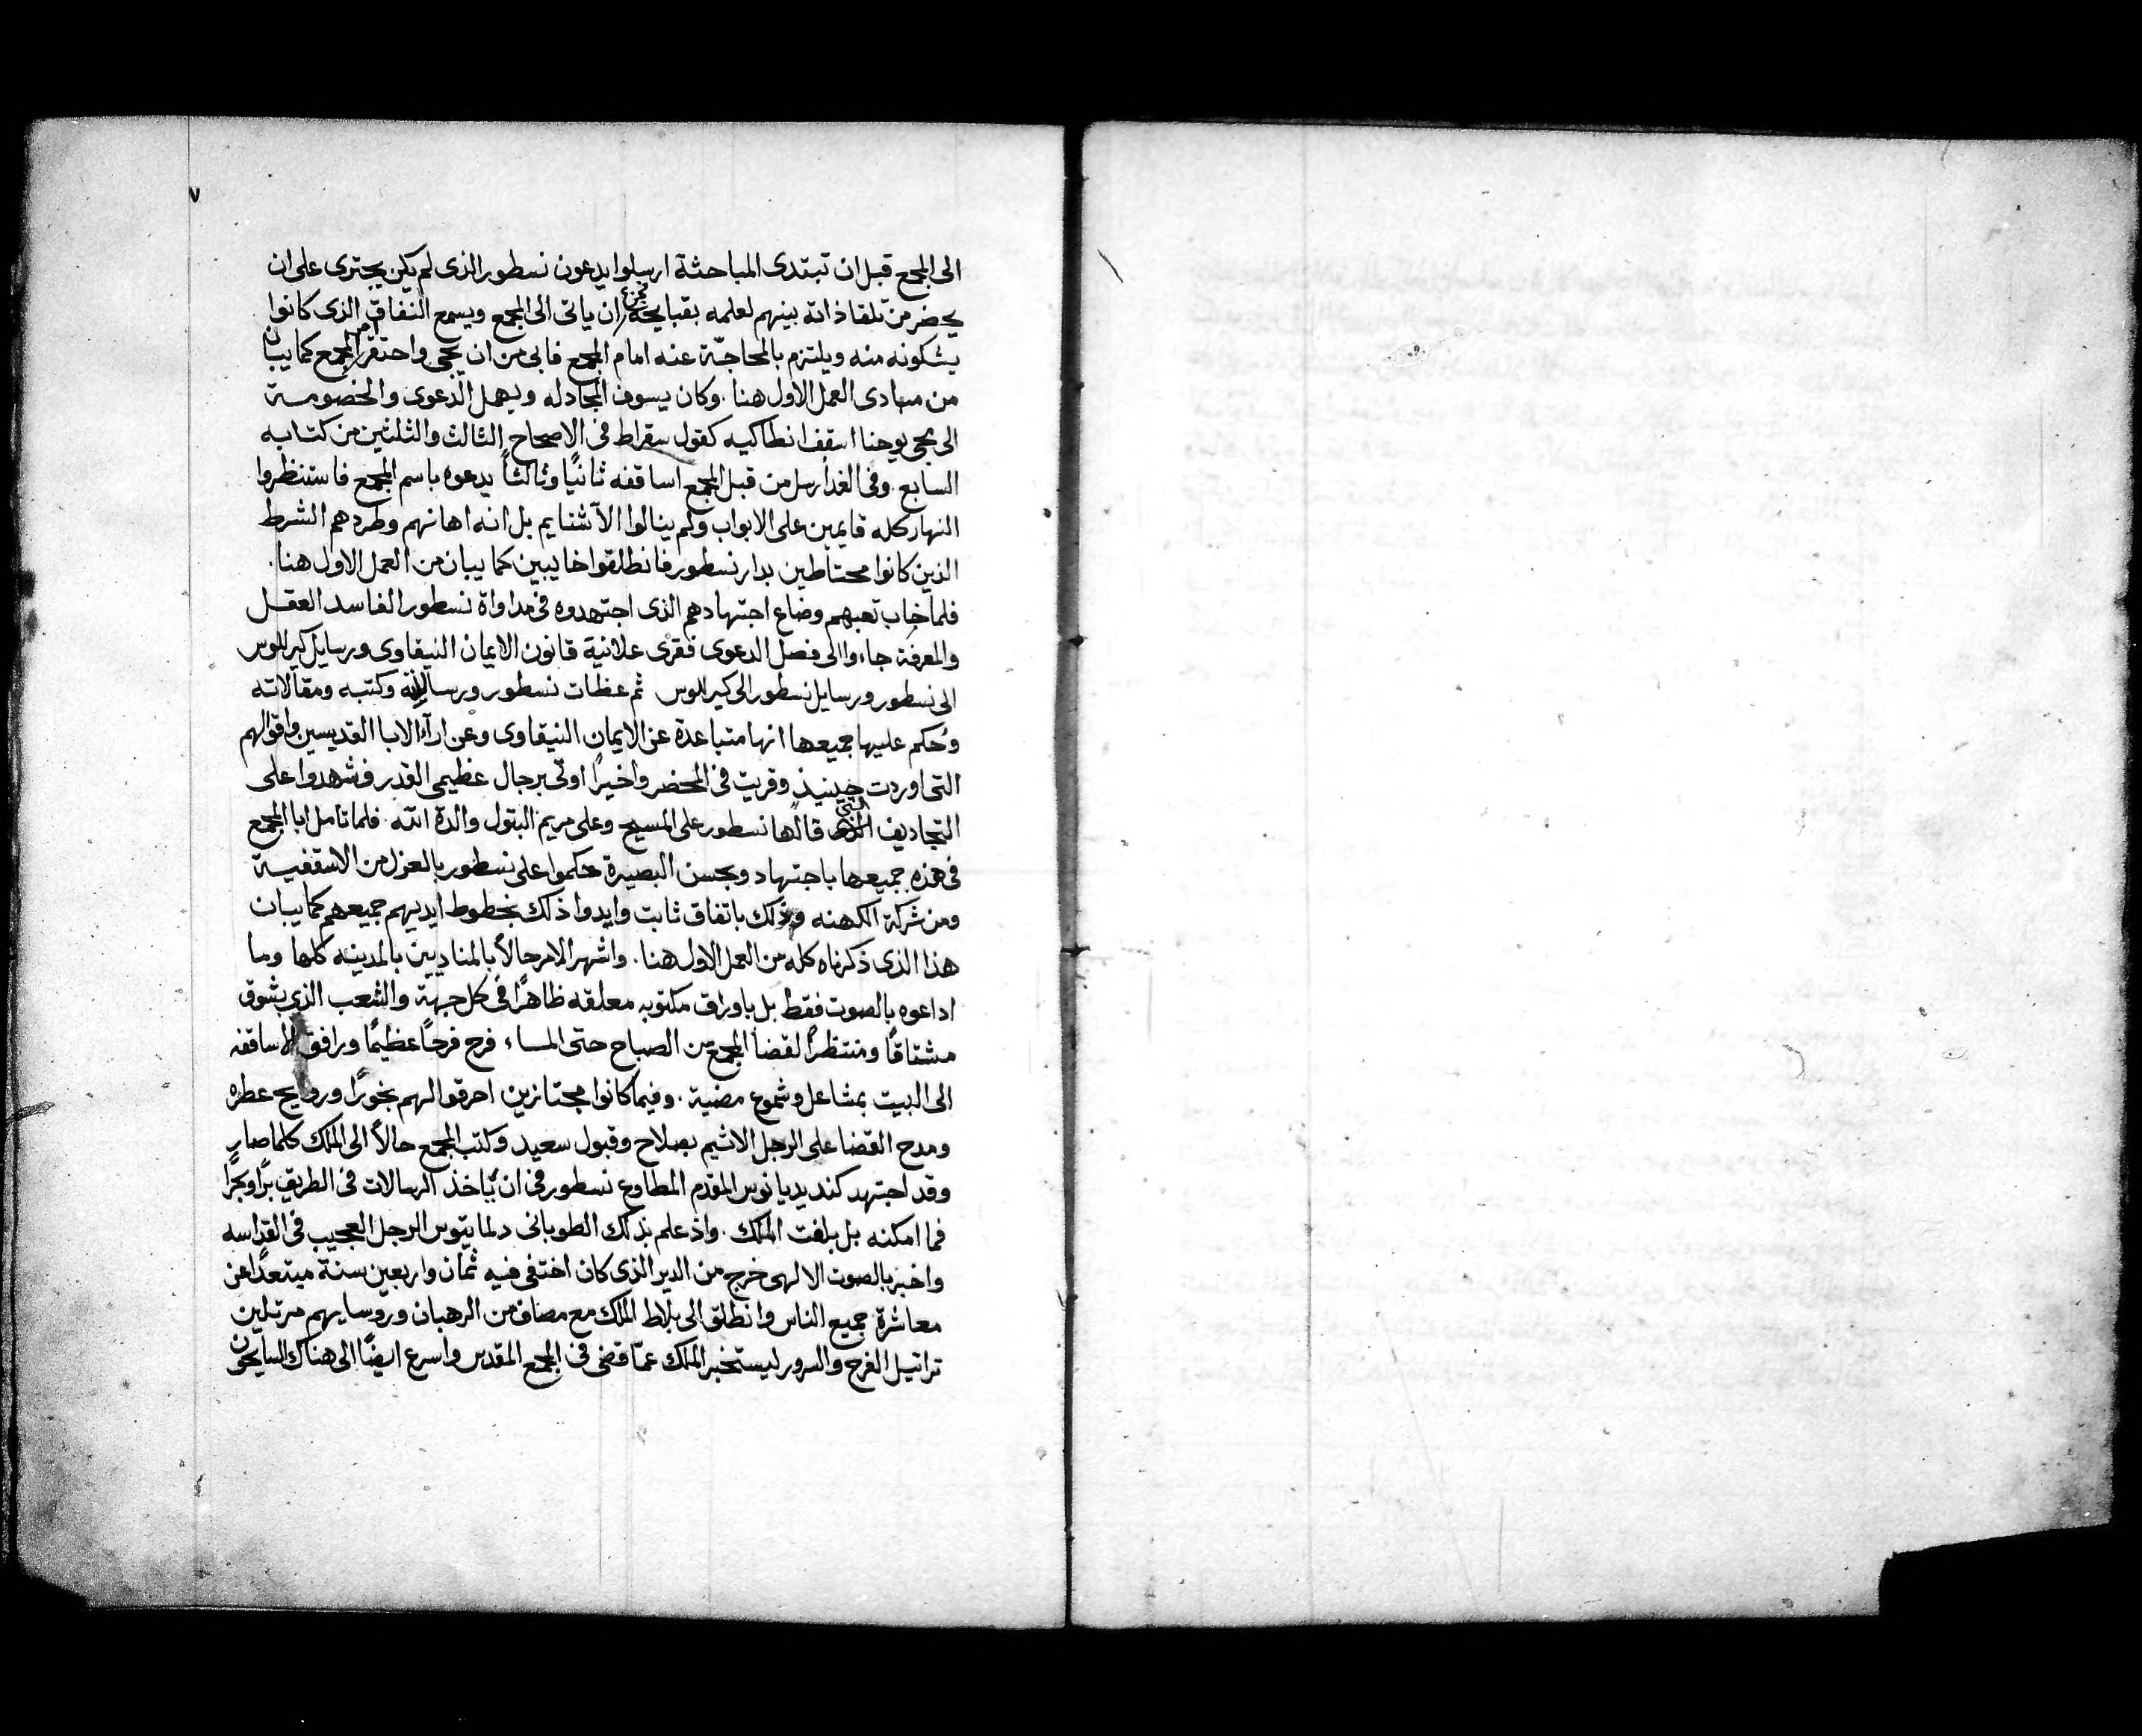 ٧
الى المجمع قبل ان تبتدى المباحثة ارسلوا يدعون نسطور الذى لم يكن يجترى على ان
يحضر من تلقا ذاته بينهم لعلمه بقبايحه ان ياتى الى المجمع ويسمع النفاق الذى كانوا
يشكونه منه ويلتزم بالمحاجّة عنه امام المجمع فابى من ان يجى واحتقر امر المجمع كما يبان
من مبادى العمل الاول هنا . وكان يسوف المجادله ويهمل الدعوى والخصومة
الى مجى يوحنا اسقف انطاكيه كقول سقراط فى الاصحاح الثالث والثلثين من كتابه
السابع . وفى الغد أرسل من قبل المجمع اساقفه ثانيًا وثالثاً يدعوه باسم المجمع فاستنظروا
النهار كله قايمين على الابواب ولم ينالوا الآ شتايم بل انه اهانهم وطردهم الشرط
الذين كانوا محتاطين بدار نسطور فانطلقوا خايبين كما يبان من العمل الاول هنا .
فلما خاب تعبهم وضاع اجتهادهم الذى اجتهدوه فى مداواة نسطور الفاسد العقل
والمعرفة جاءوا الى فصل الدعوى فقرى علانية قانون الايمان النيقاوى ورسايل كيرللوس
الى نسطور ورسايل نسطور الى كيرللوس ثم عظات نسطور ورسالاته وكتبه ومقالاته
وحُكم عليها جميعها انها متباعدة عن الايمان النيقاوى وعن ارآء الابا القديسين واقوالهم
التى اوردت حينيذ وقريت فى المحضر واخيرًا اوتى برجال عظيمى القدر فشهدوا على
التجاديف التى قالها نسطور على المسيح وعلى مريم البتول والدة الله . فلما تامل ابا المجمع
فى هذه جميعها باجتهاد وبحسن البصيرة حكموا على نسطور بالعزل من الاسقفية
ومن شركة الكهنه وذلك باتفاق ثابت وايدوا ذلك بخطوط ايديهم جميعهم كما يبان
هذا الذى ذكرناه كله من العمل الاول هنا . واشهر الامر حالاً بالمناديين بالمدينه كلها وما
اداعوه بالصوت فقط بل باوراق مكتوبه معلقه ظاهرًا فى كل جهة والشعب الذى بشوق
مشتاقًا ومنتظرًا لقضا المجمع من الصباح حتى المساء فرح فرحًا عظيمًا ورافق الاساقفه
الى البيت بمشاعل وشموع مضية . وفيما كانوا مجتازين احرقوا لهم بخورًا وروايح عطره
ومدح القضا على الرجل الاثيم بصلاح وقبول سعيد وكتب المجمع حالاً الى الملك كلما صار
وقد اجتهد كنديديانوس المقدم المطاوع نسطور فى ان ياخذ الرسالات فى الطريق برًا وبحرًا
فما امكنه بل بلغت الملك . واذ علم بذلك الطوبانى دلماتيوس الرجل العجيب فى القداسه
واخبر بالصوت الالهى خرج من الدير الذى كان اختفى فيه ثمان واربعين سنة مبتعدًا عن
معاشرة جميع الناس وانطلق الى بلاط الملك مع مصاف من الرهبان وروسايهم مرتلين
تراتيل الفرح والسرور ليستخبر الملك عمّا قضى فى المجمع المقدس واسرع ايضًا الى هناك السايحون